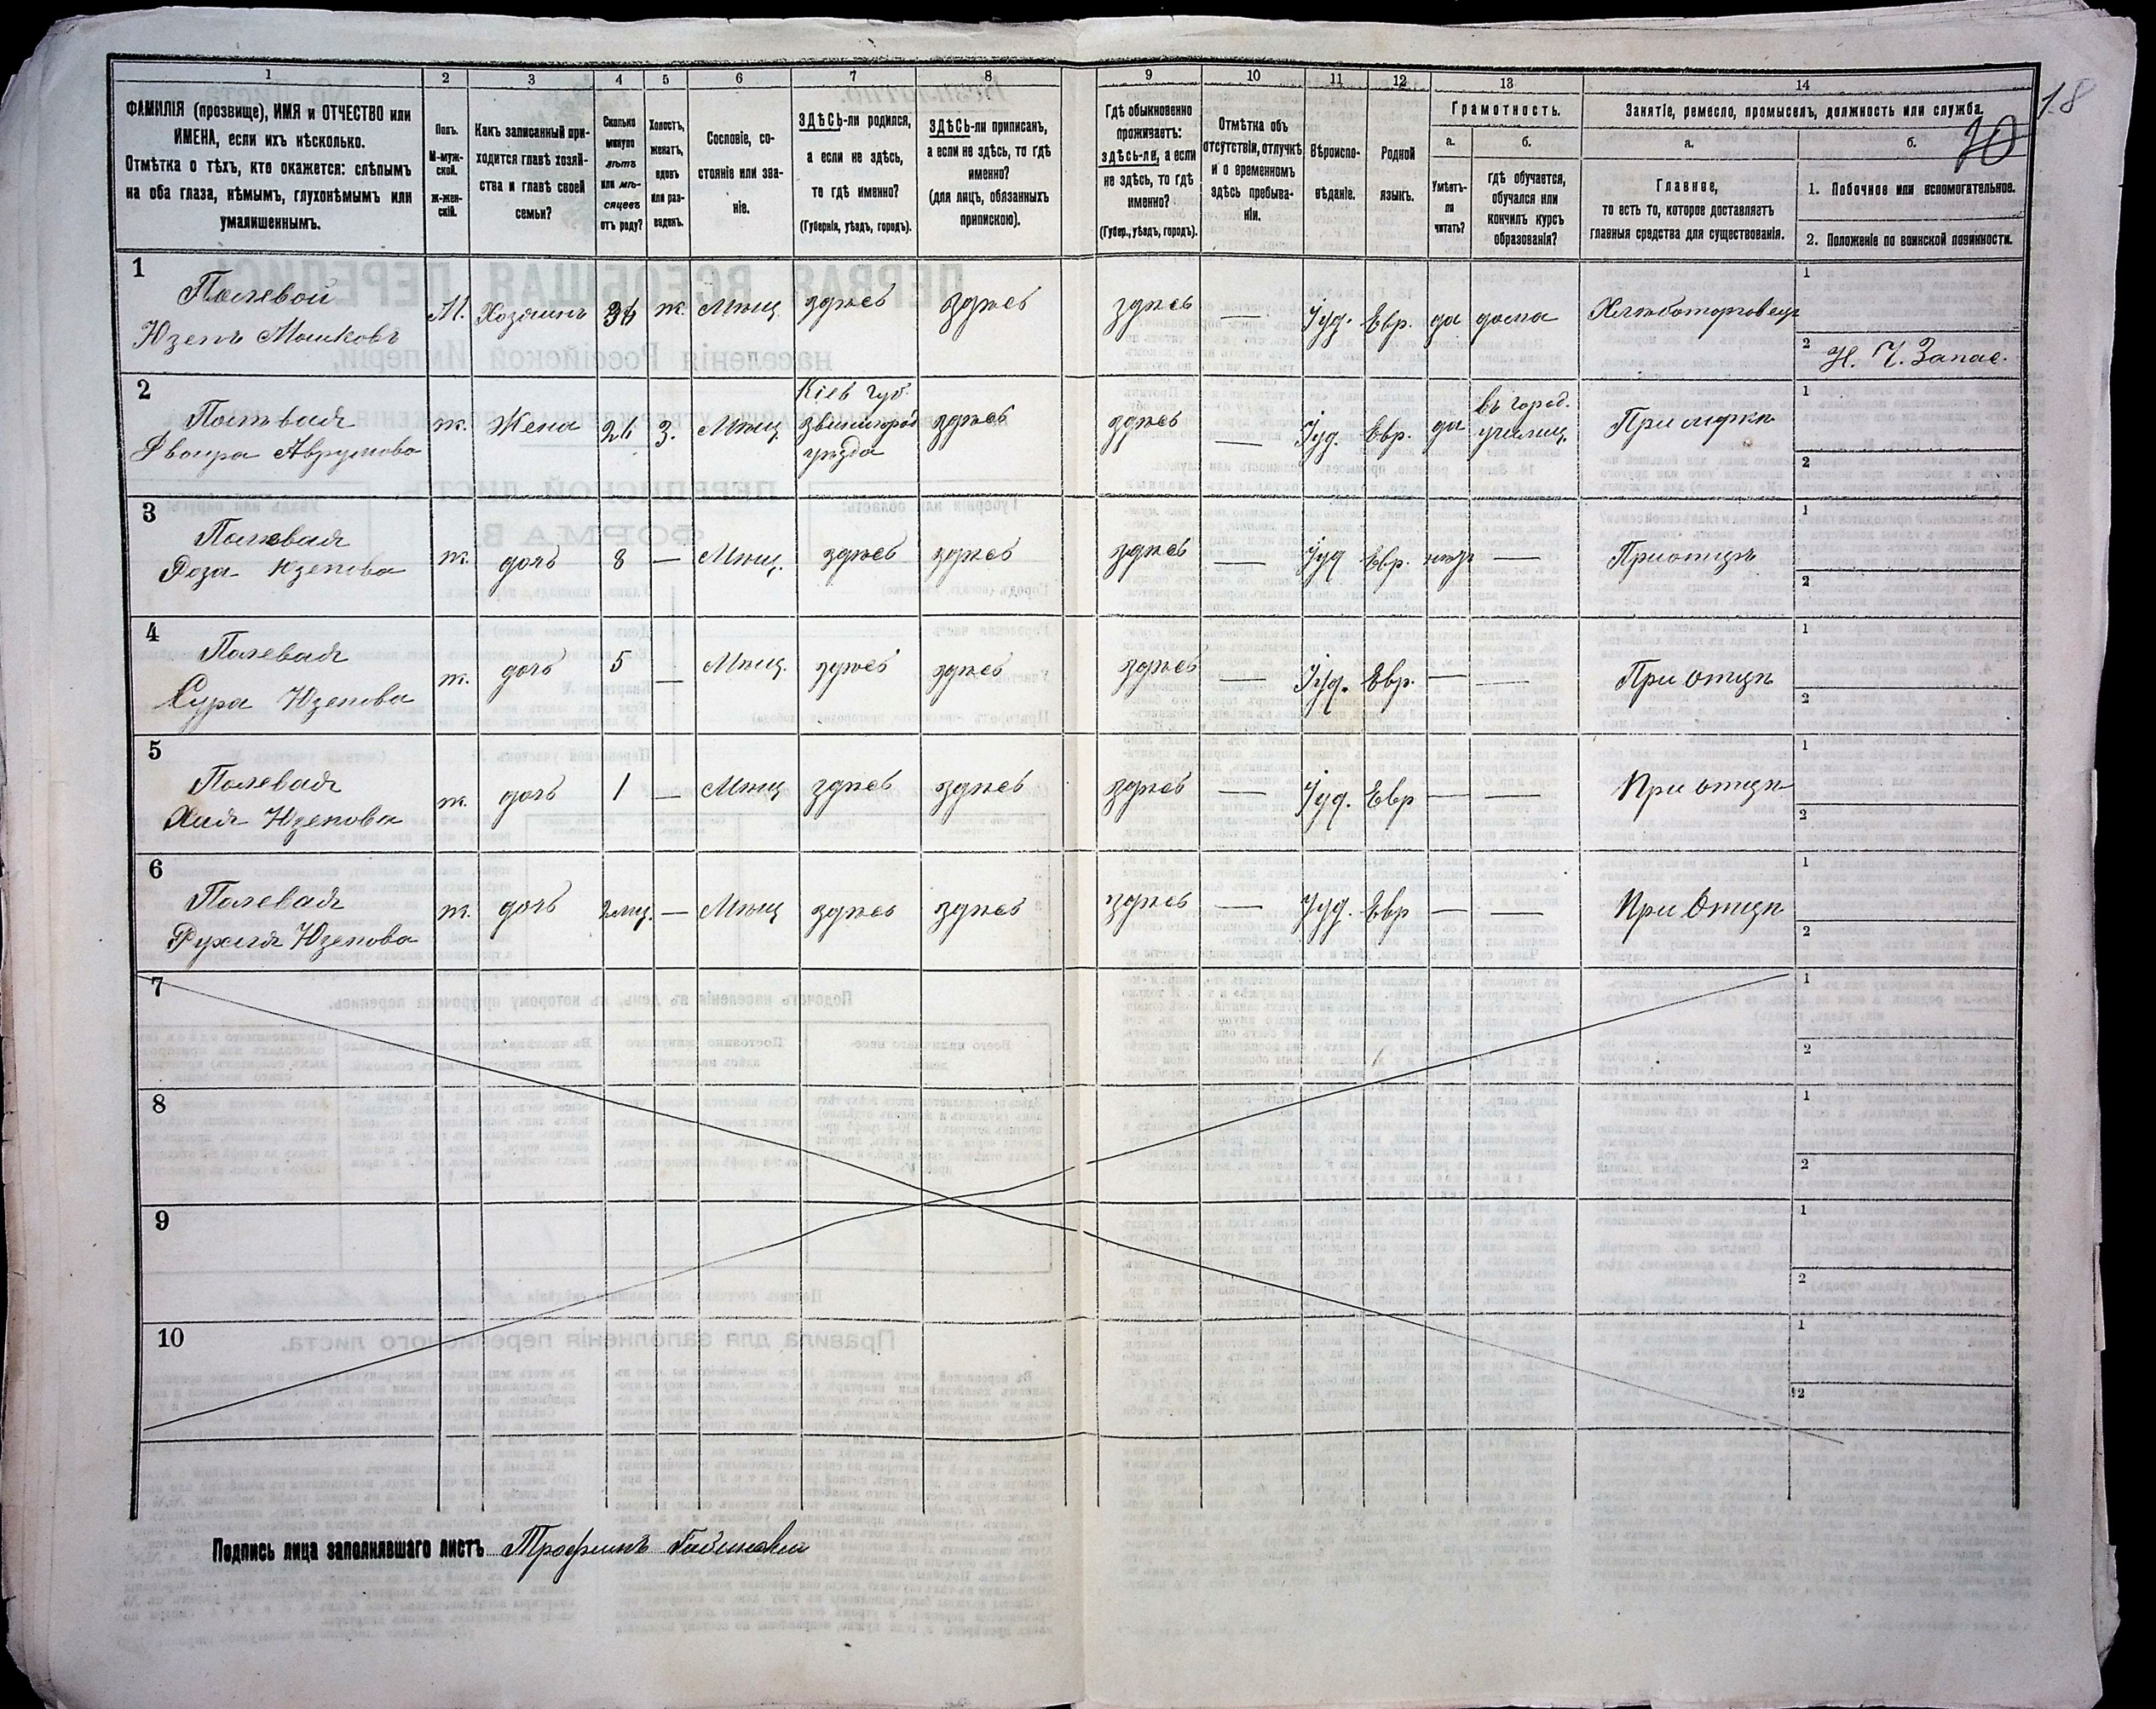 1 2 3 4 5 6 7 8 9 10 11 12 13 14
18
ФАМИЛІЯ (прозвище), ИМЯ и ОТЧЕСТВО или
ИМЕНА, если ихъ нѣсколько.
Отмѣтка о тѣхъ, кто окажется: слѣпымъ
на оба глаза, нѣмымъ, глухонѣмымъ или
умалишеннымъ.
Полъ.
М-муж-
ской.
Ж-жен-
скій.
Какъ записанный при-
ходится главѣ хозяй-
ства и главѣ своей
семьи?
Сколько
минуло
лѣтъ
или мѣ-
сяцевъ
отъ роду?
Холостъ,
женатъ,
вдовъ
или раз-
веденъ.
Сословіе, со-
стояніе или зва-
ніе.
ЗДѢСЬ-ли родился,
а если не здѣсь,
то гдѣ именно?
(Губернія, уѣздъ, городъ).
ЗДѢСЬ-ли приписанъ,
а если не здѣсь, то гдѣ
именно?
(для лицъ, обязанныхъ
припискою).
Гдѣ обыкновенно
проживаетъ:
здѣсь-ли, а если
не здѣсь, то гдѣ
именно?
(Губер., уѣздъ, городъ).
Отмѣтка объ
отсутствіи, отлучкѣ
и о временномъ
здѣсь пребыва-
ніи.
Вѣроиспо-
вѣданіе.
Родной
языкъ.
Грамотность.
а.
Умѣетъ-
ли
читать?
б.
гдѣ обучается,
обучался или
кончилъ курсъ
образованія?
Занятіе, ремесло, промыселъ, должность или служба.
а.
Главное,
то есть то, которое доставляетъ
главныя средства для существованія.
б.
1. Побочное или вспомогательное.
2. Положеніе по воинской повинности.
1
Полевой
Юзепъ Мошковъ
М. Хозяинъ ж. Мѣщ. здѣсь здѣсь здѣсь — Іуд. Евр. да дома Хлѣботорговецъ
1
2 Н. Ч. Запас.
2
Полевая
Двоира Аврумова
ж. Жена 26 З. Мѣщ.
Кіев. губ.
Звенигород
уѣзда
здѣсь здѣсь — Іуд. Евр. да
въ город.
училищ.
При мужѣ
1
2
3
Полевая
Роза Юзепова
ж. дочь 8 — Мѣщ. здѣсь здѣсь здѣсь — Іуд Евр. нѣтъ — При отцѣ
1
2
4
Полевая
Сура Юзепова
ж. дочь 5 — Мѣщ. здѣсь здѣсь здѣсь — Іуд. Евр. — — При отцѣ
1
2
5
Полевая
Хая Юзепова
ж. дочь 1 — Мѣщ здѣсь здѣсь здѣсь — Іуд. Евр — — При отцѣ
1
2
6
Полевая
Рухля Юзепова
ж. дочь 2 мц. — Мѣщ здѣсь здѣсь здѣсь — Іуд. Евр — — При Отцѣ
1
2
7
1
2
8
1
2
9
1
2
10
1
2
Подпись лица заполнявшаго листъ Трофимъ